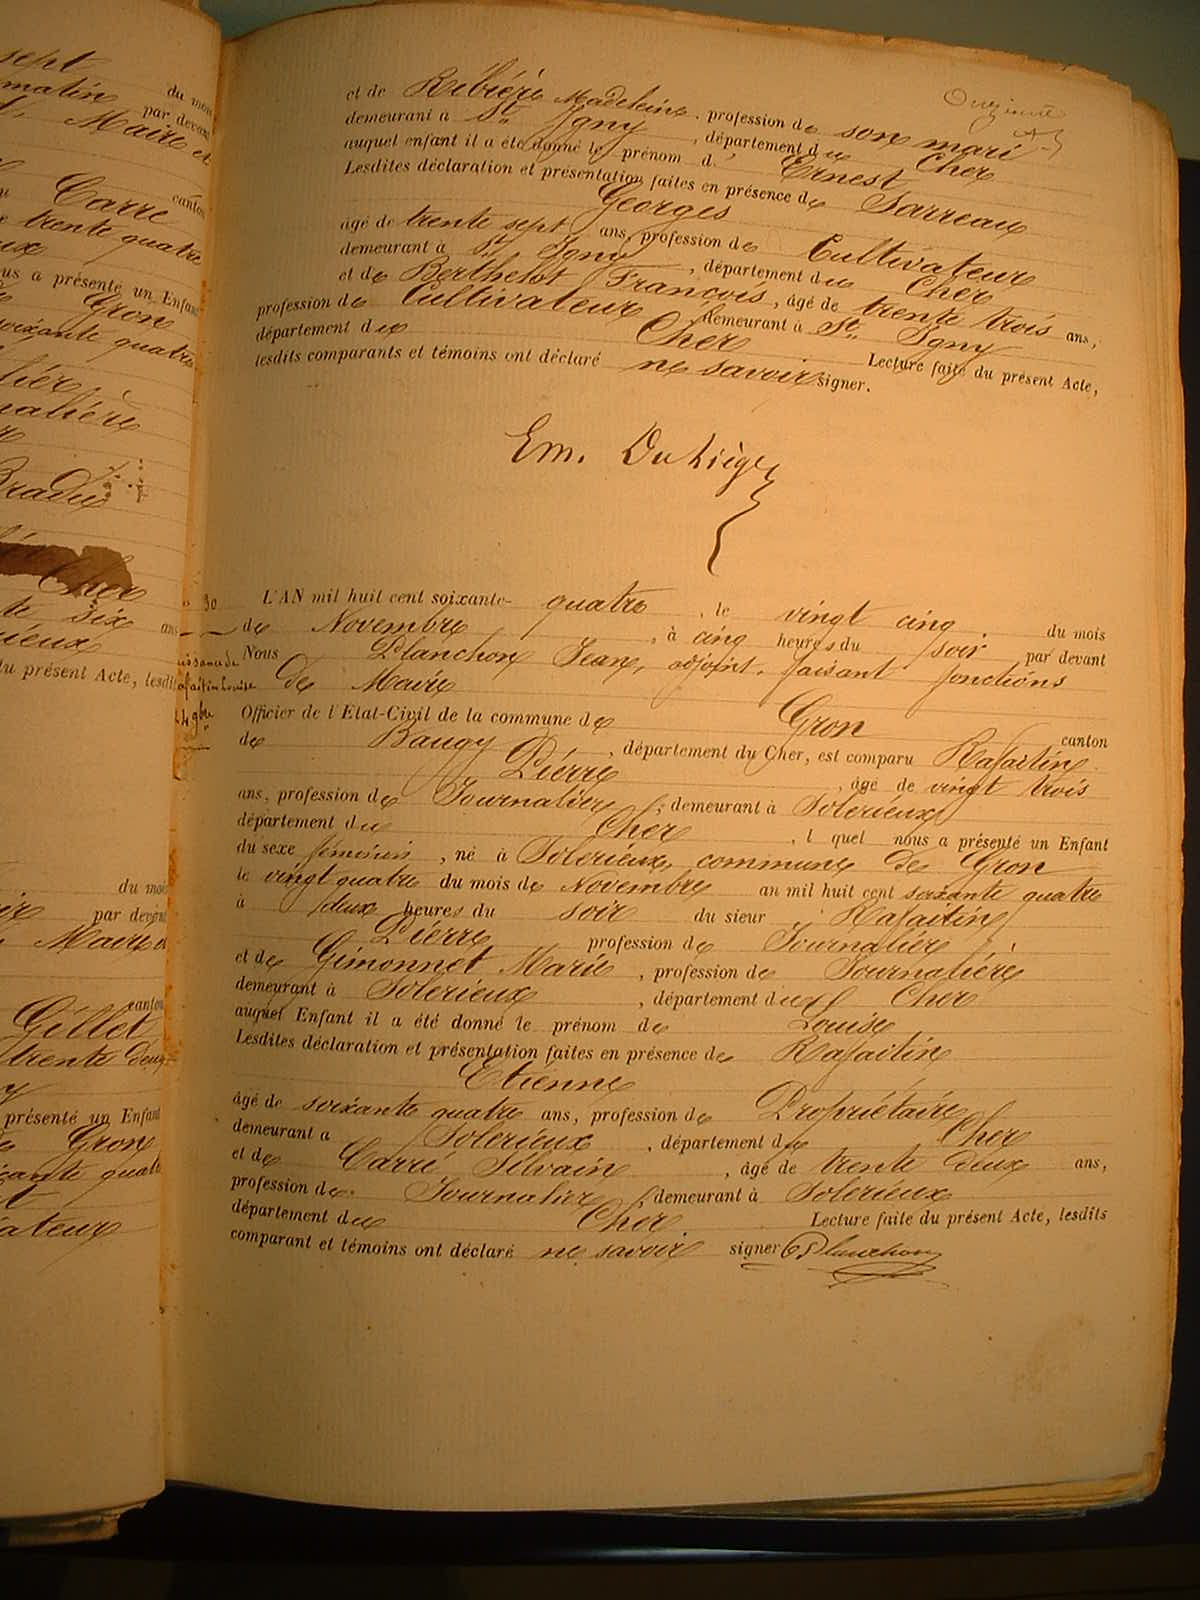 sept
du mois
matin par devant
Maire et
canton
Carré
trente quatre
us a présenté un Enfant
Gron
soixante quatre
Cher
six ans
du présent Acte, lesdits
du mois
par devant
Maire
canton
Gillet
trente deux
présenté un Enfant
Gron
et de Ribière Madeleine, profession de son mari
demeurant à St Igny, département du Cher
auquel enfant il a été donné le prénom d' Ernest
Lesdites déclaration et présentation faites en présence de Sarreau
Georges
âgé de trente sept ans, profession de Cultivateur
demeurant à St Igny, département du Cher
et de Berthelot François, âgé de trente trois ans,
profession de Cultivateur demeurant à St Igny
département du Cher Lecture faite du présent Acte,
lesdits comparants et témoins ont déclaré ne savoir signer.
Em. Duliège
30
L'AN mil huit cent soixante- quatre, le vingt cinq du mois
de Novembre, à cinq heures du soir par devant
Nous Planchon Jean, adjoint faisant fonctions
de Maire
issance de
Rafaitin Louise
24 9bre
Officier de l'État-Civil de la commune de Gron canton
de Baugy, département du Cher, est comparu Rafaitin
Pierre, âgé de vingt trois
ans, profession de Journalier, demeurant à Solerieux
département du Cher, l quel nous a présenté un Enfant
du sexe féminin, né à Solerieux, commune de Gron
le vingt quatre du mois de Novembre an mil huit cent soixante quatre
à deux heures du soir du sieur Rafaitin
Pierre profession de Journalier
et de Gimonnet Marie, profession de Journalière
demeurant à Solerieux, département du Cher
auquel Enfant il a été donné le prénom de Louise
Lesdites déclaration et présentation faites en présence de Rafaitin
Etienne
âgé de soixante quatre ans, profession de Propriétaire
demeurant à Solerieux, département du Cher
et de Carré Silvain, âgé de trente deux ans,
profession de Journalier demeurant à Solerieux
département du Cher Lecture faite du présent Acte, lesdits
comparant et témoins ont déclaré ne savoir signer Planchon